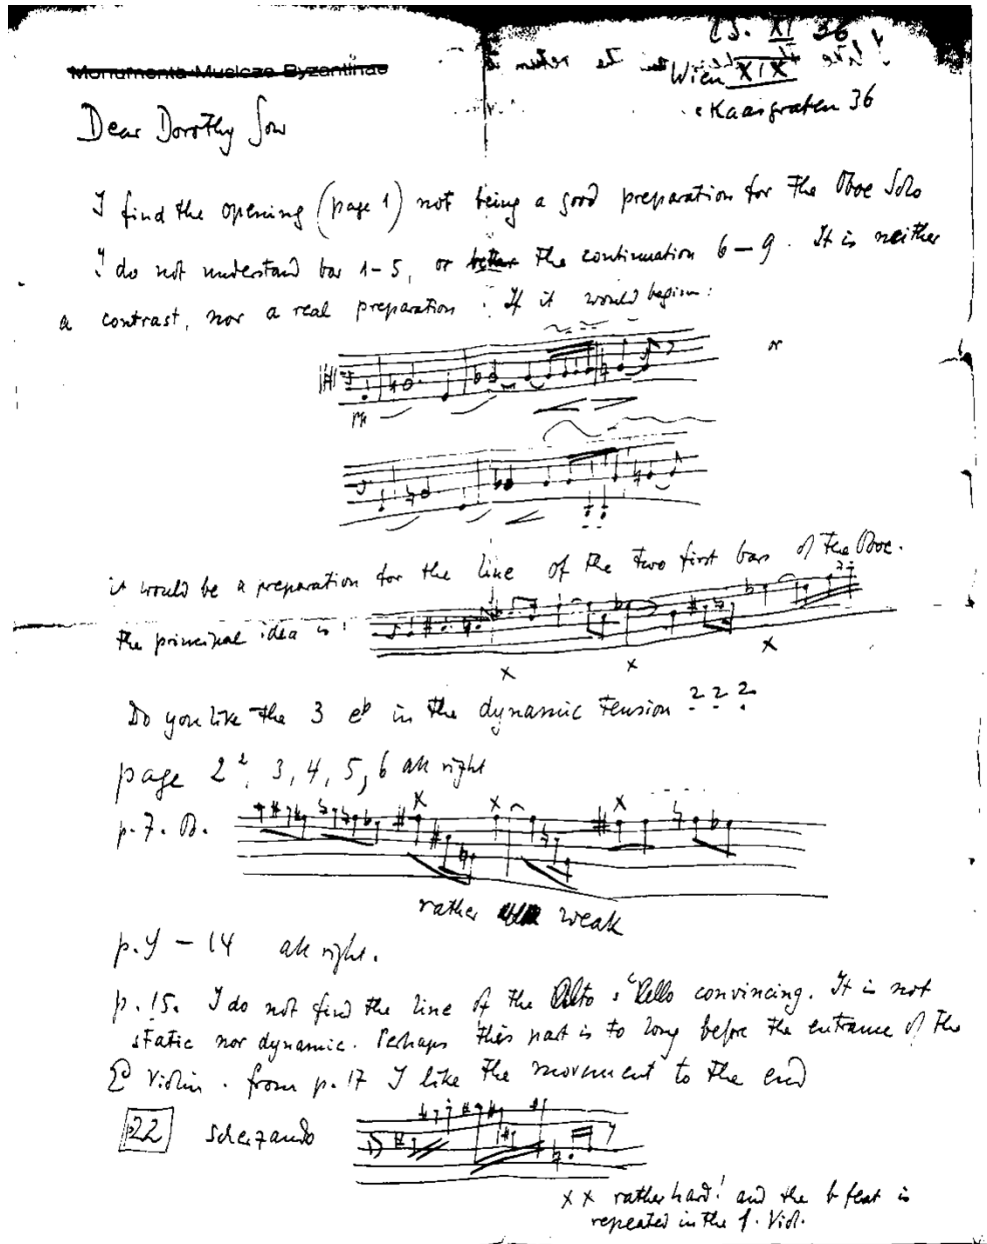 23. XI 36
Monumenta Musicae Byzantinae
Wien XIX
Kaasgraben 36
Dear Dorothy Gow
I find the opening (page 1) not being a good preparation for the Oboe Solo
I do not understand bar 1-5, or the continuation 6-9. It is neither
a contrast, nor a real preparation. If it would begin:
or
it would be a preparation for the line of the two first bars of the Oboe.
the principal idea is:
x x x
Do you like the 3 e♭ in the dynamic tension ???
page 2, 3, 4, 5, 6 all right
p. 7. B.
x x x
rather weak
p. 9 - 14 all right.
p. 15. I do not find the line of the Alto & Cello convincing. It is not
static nor dynamic. Perhaps this part is to long before the entrance of the
2d Violin. from p. 17 I like the movement to the end
22 scherzando
x x rather hard! and the b flat is
repeated in the 1. Viol.